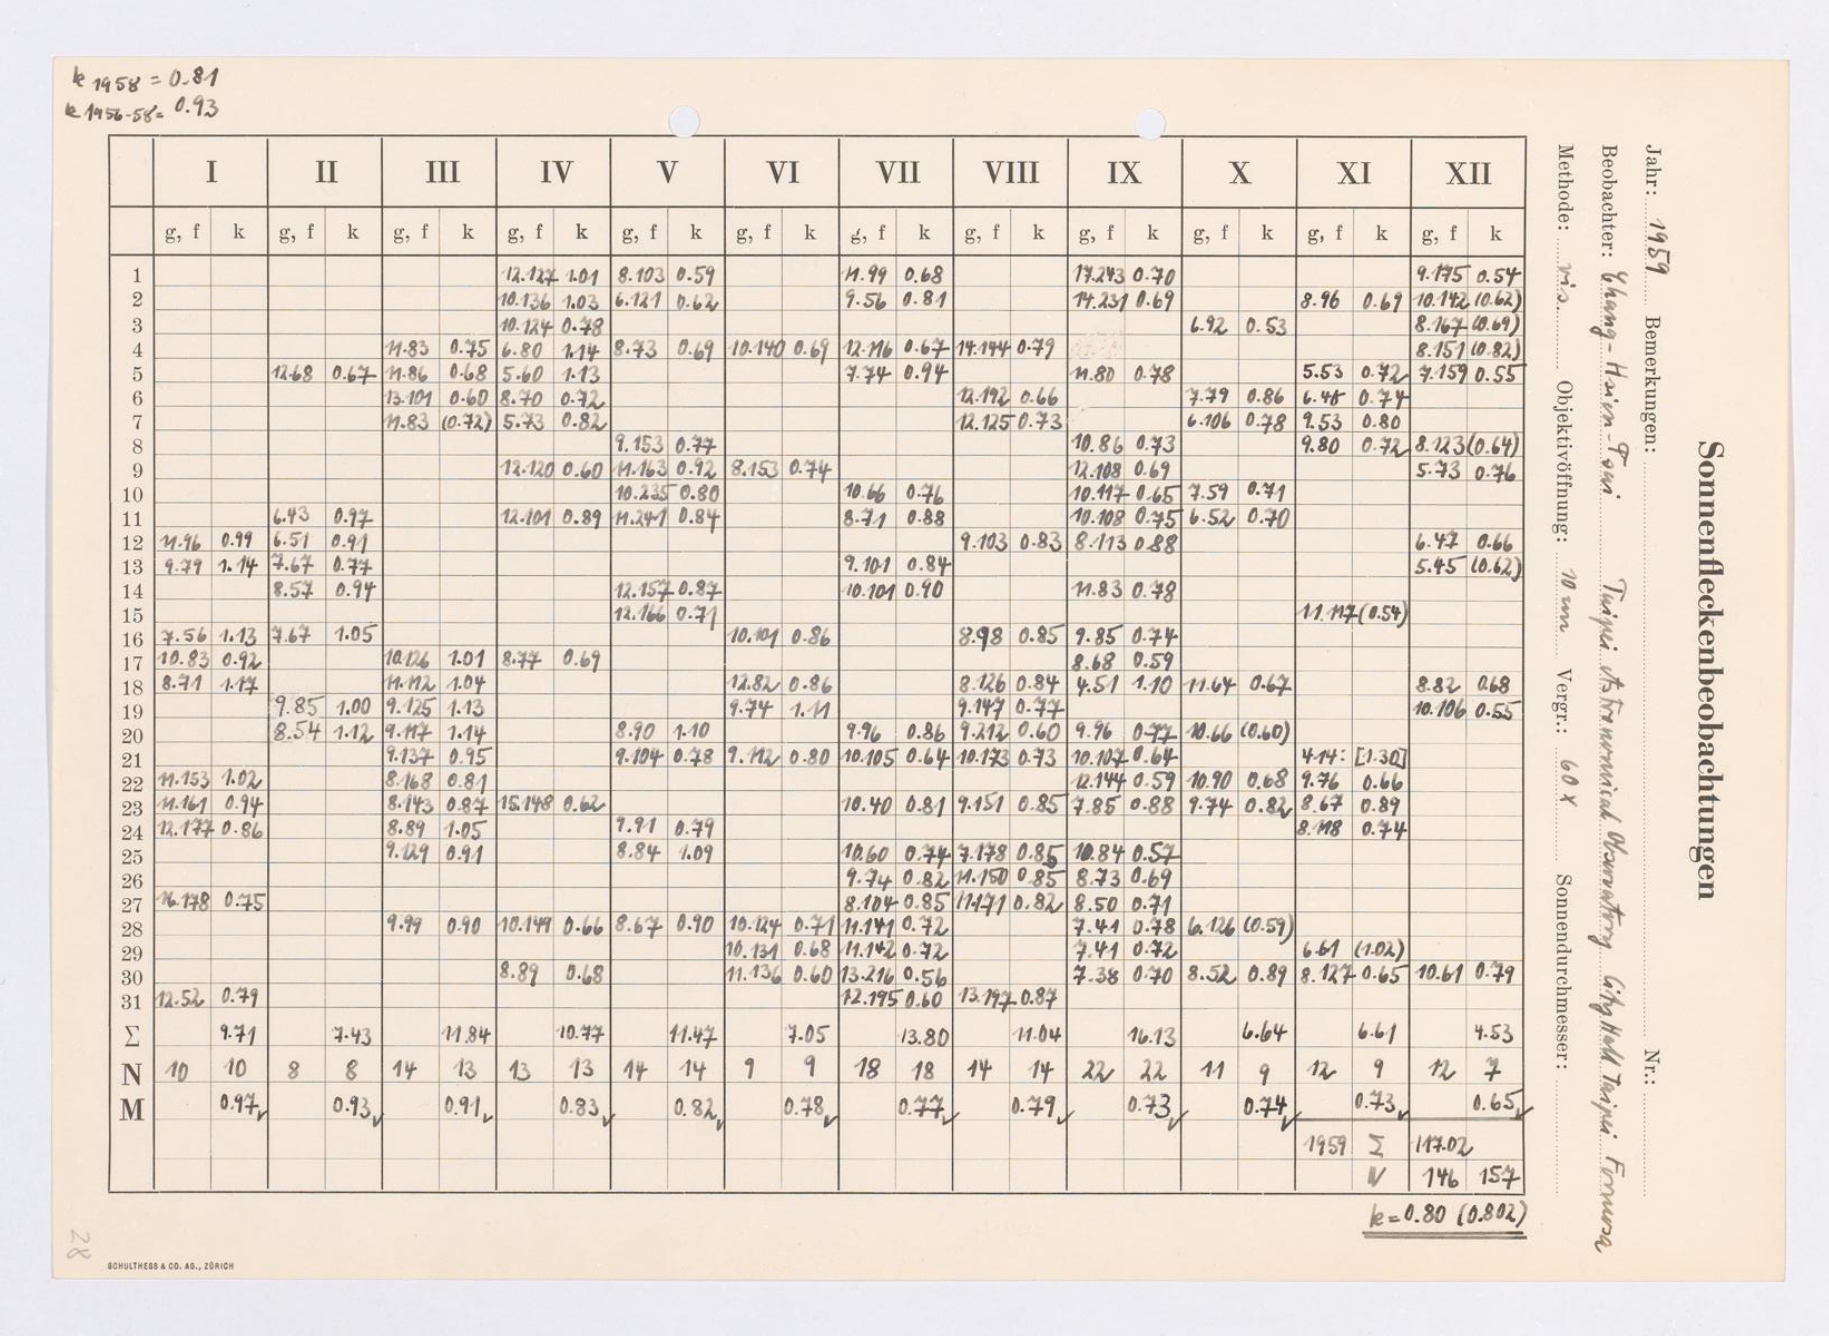 k 1958 = 0.81
k 1956-58 = 0.93
Sonnenfleckenbeobachtungen
Jahr: 1959 Bemerkungen: Nr.:
Beobachter: Chang-Hsien-Tsai Taipei Astronomical Observatory City Hall Taipei Formosa
Methode: vis. Objektivöffnung: 10 cm Vergr.: 60 x Sonnendurchmesser:
I II III IV V VI VII VIII IX X XI XII
g, f k g, f k g, f k g, f k g, f k g, f k g, f k g, f k g, f k g, f k g, f k g, f k
1 12.127 1.01 8.103 0.59 11.99 0.68 17.243 0.70 9.175 0.54
2 10.136 1.03 6.121 0.62 9.56 0.81 14.231 0.69 8.96 0.69 10.142 (0.62)
3 10.124 0.78 6.92 0.53 8.167 (0.69)
4 11.83 0.75 6.80 1.14 8.73 0.69 10.140 0.69 12.116 0.67 14.144 0.79 8.151 (0.82)
5 12.68 0.67 11.86 0.68 5.60 1.13 7.74 0.94 11.80 0.78 5.53 0.72 7.159 0.55
6 13.101 0.60 8.70 0.72 12.192 0.66 7.79 0.86 6.48 0.74
7 11.83 (0.72) 5.73 0.82 12.125 0.73 6.106 0.78 9.53 0.80
8 9.153 0.77 10.86 0.73 9.80 0.72 8.123 (0.64)
9 12.120 0.60 11.163 0.92 8.153 0.74 12.108 0.69 5.73 0.76
10 10.235 0.80 10.66 0.76 10.117 0.65 7.59 0.71
11 6.43 0.97 12.101 0.89 11.241 0.84 8.71 0.88 10.108 0.75 6.52 0.70
12 11.96 0.99 6.51 0.91 9.103 0.83 8.113 0.88 6.47 0.66
13 9.79 1.14 7.67 0.77 9.101 0.84 5.45 (0.62)
14 8.57 0.94 12.157 0.87 10.101 0.90 11.83 0.78
15 12.166 0.71 11.117 (0.54)
16 7.56 1.13 7.67 1.05 10.101 0.86 8.98 0.85 9.85 0.74
17 10.83 0.92 10.126 1.01 8.77 0.69 8.68 0.59
18 8.71 1.17 11.112 1.04 12.82 0.86 8.126 0.84 4.51 1.10 11.64 0.67 8.82 0.68
19 9.85 1.00 9.125 1.13 9.74 1.11 9.147 0.77 10.106 0.55
20 8.54 1.12 9.117 1.14 8.90 1.10 9.96 0.86 9.212 0.60 9.96 0.77 10.66 (0.60)
21 9.137 0.95 9.104 0.78 9.112 0.80 10.105 0.64 10.173 0.73 10.107 0.64 4.14: [1.30]
22 11.153 1.02 8.168 0.81 12.144 0.59 10.90 0.68 9.76 0.66
23 11.161 0.94 8.143 0.87 15.148 0.62 10.40 0.81 9.151 0.85 7.85 0.88 9.74 0.82 8.67 0.89
24 12.177 0.86 8.89 1.05 9.91 0.79 8.118 0.74
25 9.129 0.91 8.84 1.09 10.60 0.74 7.178 0.85 10.84 0.57
26 9.74 0.82 11.150 0.85 8.73 0.69
27 16.178 0.75 8.104 0.85 11.171 0.82 8.50 0.71
28 9.99 0.90 10.149 0.66 8.67 0.90 10.124 0.71 11.141 0.72 7.41 0.78 6.126 (0.59)
29 10.131 0.68 11.142 0.72 7.41 0.72 6.61 (1.02)
30 8.89 0.68 11.136 0.60 13.216 0.56 7.38 0.70 8.52 0.89 8.127 0.65 10.61 0.79
31 12.52 0.79 12.195 0.60 13.197 0.87
Σ 9.71 7.43 11.84 10.77 11.47 7.05 13.80 11.04 16.13 6.64 6.61 4.53
N 10 10 8 8 14 13 13 13 14 14 9 9 18 18 14 14 22 22 11 9 12 9 12 7
M 0.97 0.93 0.91 0.83 0.82 0.78 0.77 0.79 0.73 0.74 0.73 0.65
1959 Σ 117.02
N 146 157
k = 0.80 (0.802)
28
SCHULTHESS & CO. AG., ZÜRICH